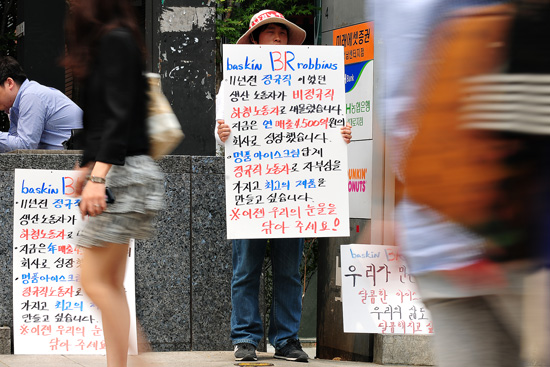 baskin BR robbins
11년전 정규직 이였던
생산 노동자가 비정규직
하청노동자로 내몰렸습니다.
지금은 연 매출 4,500억원의
회사로 성장했습니다.
명품 아이스크림 답게
정규직 노동자로 자부심을
가지고 최고의 제품을
만들고 싶습니다.
※이젠 우리의 눈물을
닦아 주세요!
baskin B
11년전 정규
생산 노동자가
하청노동자로
지금은 年 매
회사로 성장
명품아이스
정규직노동자로
가지고 최고의
만들고 싶습니다.
※이젠 우리의
닦아 주세요
미래에셋증권
NH농협은행
DUNKIN'
DONUTS
baskin BR
우리가 만
달콤한 아이
우리의 삶도
달콤해지